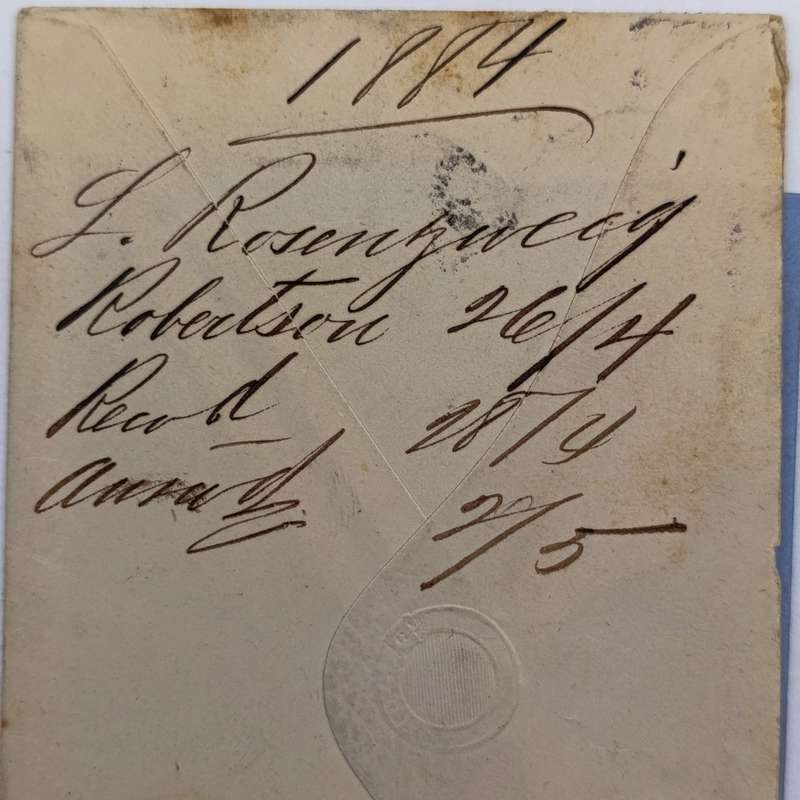 1884
L. Rosenzweig
Robertson 26/4
Recd 28/4
Answd 2/5